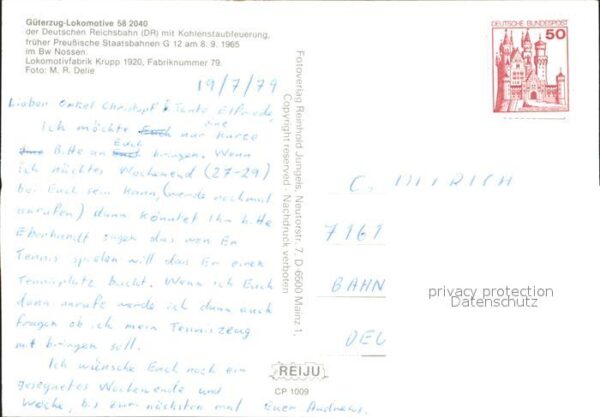 Güterzug-Lokomotive 58 2040
der Deutschen Reichsbahn (DR) mit Kohlenstaubfeuerung,
früher Preußische Staatsbahnen G 12 am 8. 9. 1965
im Bw Nossen.
Lokomotivfabrik Krupp 1920, Fabriknummer 79.
Foto: M. R. Delie
19/7/79
Lieber Onkel Christoph & Tante Elfriede,
Ich möchte Euch nur kurze
eine
Bitte an bringen. Wenn
Euch
ich nächstes Wochenend (27-29)
bei Euch sein kann, (werde nochmal
anrufen) dann könntet Ihr bitte
Eberhardt sagen das wen Er
Tennis spielen will das Er einen
Tennisplatz bucht. Wenn ich Euch
dann anrufe werde ich dann auch
fragen ob ich mein Tenniszeug
mit bringen soll.
Ich wünsche Euch noch ein
gesegnetes Wochenende und
Woche, bis zum nächsten mal Euer Andreas.
Fotoverlag Reinhold Jungels, Neutorstr. 7, D-6500 Mainz 1,
Copyright reserved - Nachdruck verboten
REIJU
CP 1009
DEUTSCHE BUNDESPOST
50
C. DITRICH
7161
BAHN
OEL
privacy protection
Datenschutz